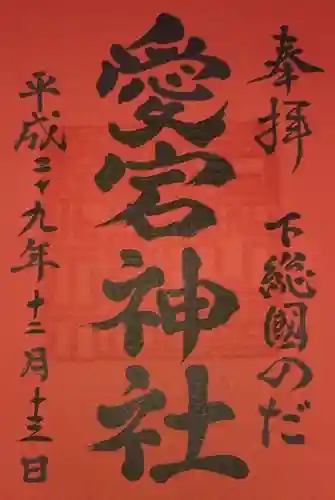 奉拝
下総國のだ
愛宕神社
平成二十九年十二月十三日